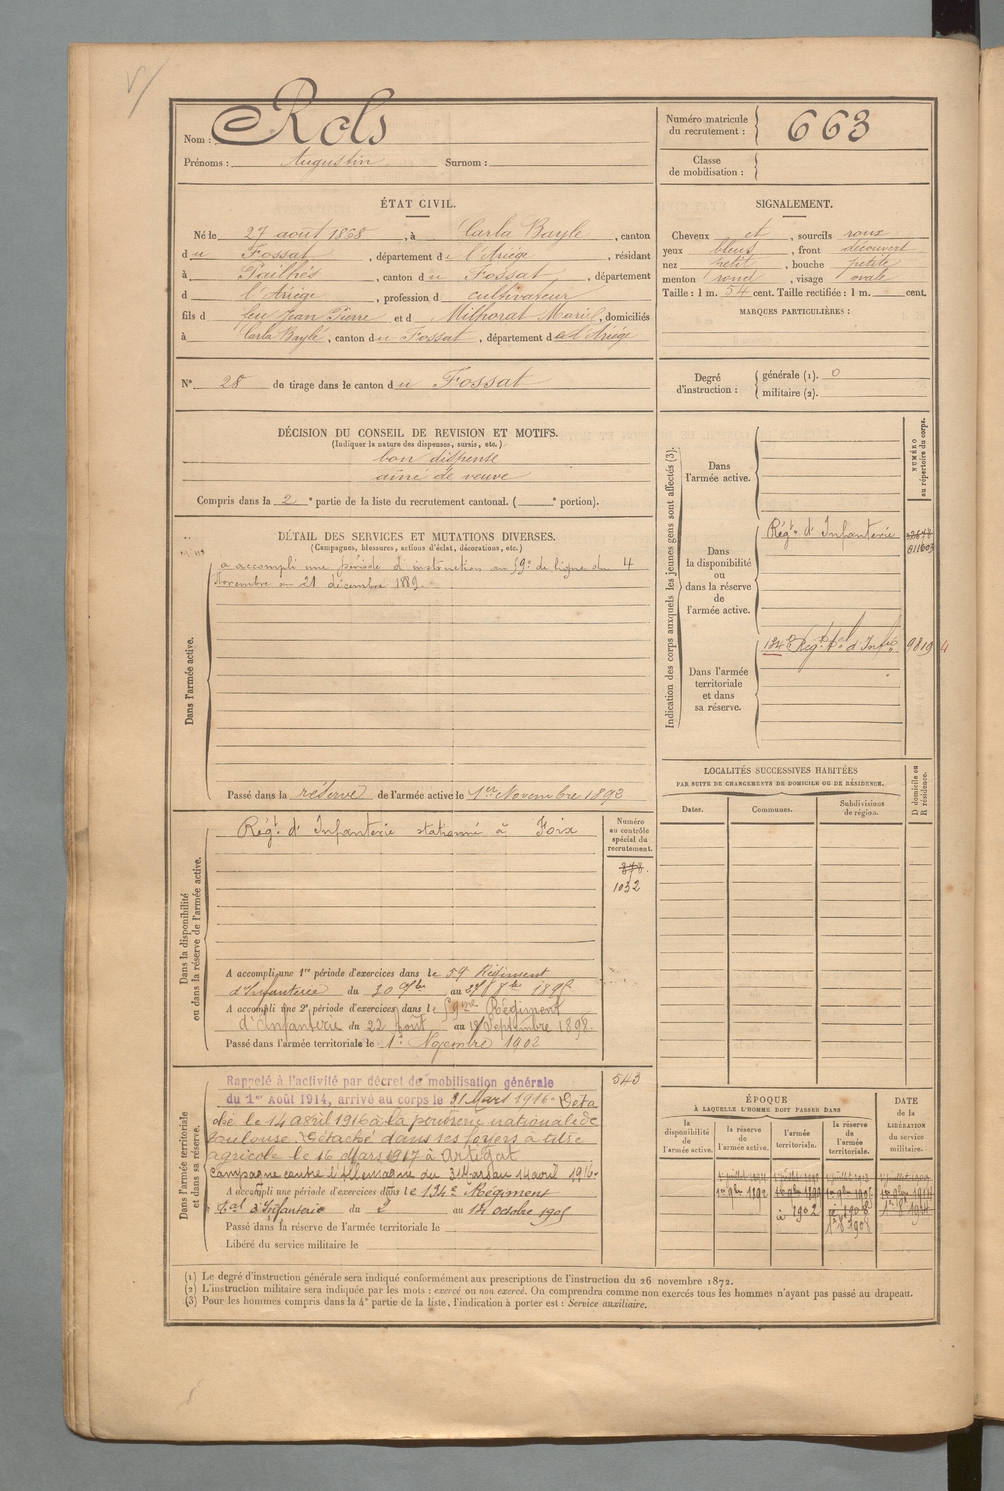 Nom : Rols
Prénoms : Augustin Surnom :
Numéro matricule du recrutement : 663
Classe de mobilisation :
ÉTAT CIVIL.
Né le 27 août 1868, à Carla Bayle, canton
du Fossat, département de l'Ariège, résidant
à Pailhés, canton du Fossat, département
d l'Ariège, profession d cultivateur
fils d feu Jean Pierre et d Milhorat Marie, domiciliés
à Carla Bayle, canton du Fossat, département de l'Ariège
N° 28 de tirage dans le canton du Fossat
SIGNALEMENT.
Cheveux et, sourcils roux
yeux bleus, front découvert
nez petit, bouche petite
menton rond, visage ovale
Taille : 1 m. 54 cent. Taille rectifiée : 1 m. cent.
MARQUES PARTICULIÈRES :
Degré d'instruction : générale (1). 0
militaire (2).
DÉCISION DU CONSEIL DE REVISION ET MOTIFS.
(Indiquer la nature des dispenses, sursis, etc.)
bon dispensé
aîné de veuve
Compris dans la 2e partie de la liste du recrutement cantonal. ( e portion).
DÉTAIL DES SERVICES ET MUTATIONS DIVERSES.
(Campagnes, blessures, actions d'éclat, décorations, etc.)
Dans l'armée active.
a accompli une période d'instruction au 59e de ligne du 4
Novembre au 21 décembre 1889.
Passé dans la réserve de l'armée active le 1er Novembre 1892
Indication des corps auxquels les jeunes gens sont affectés (3).
NUMÉRO au répertoire du corps.
Dans l'armée active.
Dans la disponibilité ou dans la réserve de l'armée active.
Régt d'Infanterie
Dans l'armée territoriale et dans sa réserve.
134e Régt tal d'Infie 9819
LOCALITÉS SUCCESSIVES HABITÉES
PAR SUITE DE CHANGEMENTS DE DOMICILE OU DE RÉSIDENCE.
D domicile ou R résidence.
Dates.
Communes.
Subdivisions de région.
Dans la disponibilité ou dans la réserve de l'armée active.
Régt d'Infanterie stationné à Foix
Numéro au contrôle spécial du recrutement.
1032
A accompli une 1re période d'exercices dans le 59e Régiment
d'Infanterie du 30 7bre au 27 8bre 1895
A accompli une 2e période d'exercices dans le 59me Régiment
d'Infanterie du 22 Août au 18 Septembre 1898.
Passé dans l'armée territoriale le 1er Novembre 1902
Dans l'armée territoriale et dans sa réserve.
543
Rappelé à l'activité par décret de mobilisation générale
du 1er Août 1914, arrivé au corps le 31 Mars 1916. Déta
ché le 14 avril 1916 à la poudrerie nationale de
Toulouse. Détaché dans ses foyers à titre
agricole le 16 Mars 1917 à Artigat
Campagne contre l'Allemagne du 31 Mars au 14 avril 1916.
A accompli une période d'exercices dans le 134e Régiment
tal d'Infanterie du 2 au 14 octobre 1905
Passé dans la réserve de l'armée territoriale le
Libéré du service militaire le
ÉPOQUE
À LAQUELLE L'HOMME DOIT PASSER DANS
la disponibilité de l'armée active.
la réserve de l'armée active.
l'armée territoriale.
la réserve de l'armée territoriale.
DATE de la LIBÉRATION du service militaire.
1er 9bre 1892
(1) Le degré d'instruction générale sera indiqué conformément aux prescriptions de l'instruction du 26 novembre 1872.
(2) L'instruction militaire sera indiquée par les mots : exercé ou non exercé. On comprendra comme non exercés tous les hommes n'ayant pas passé au drapeau.
(3) Pour les hommes compris dans la 4e partie de la liste, l'indication à porter est : Service auxiliaire.